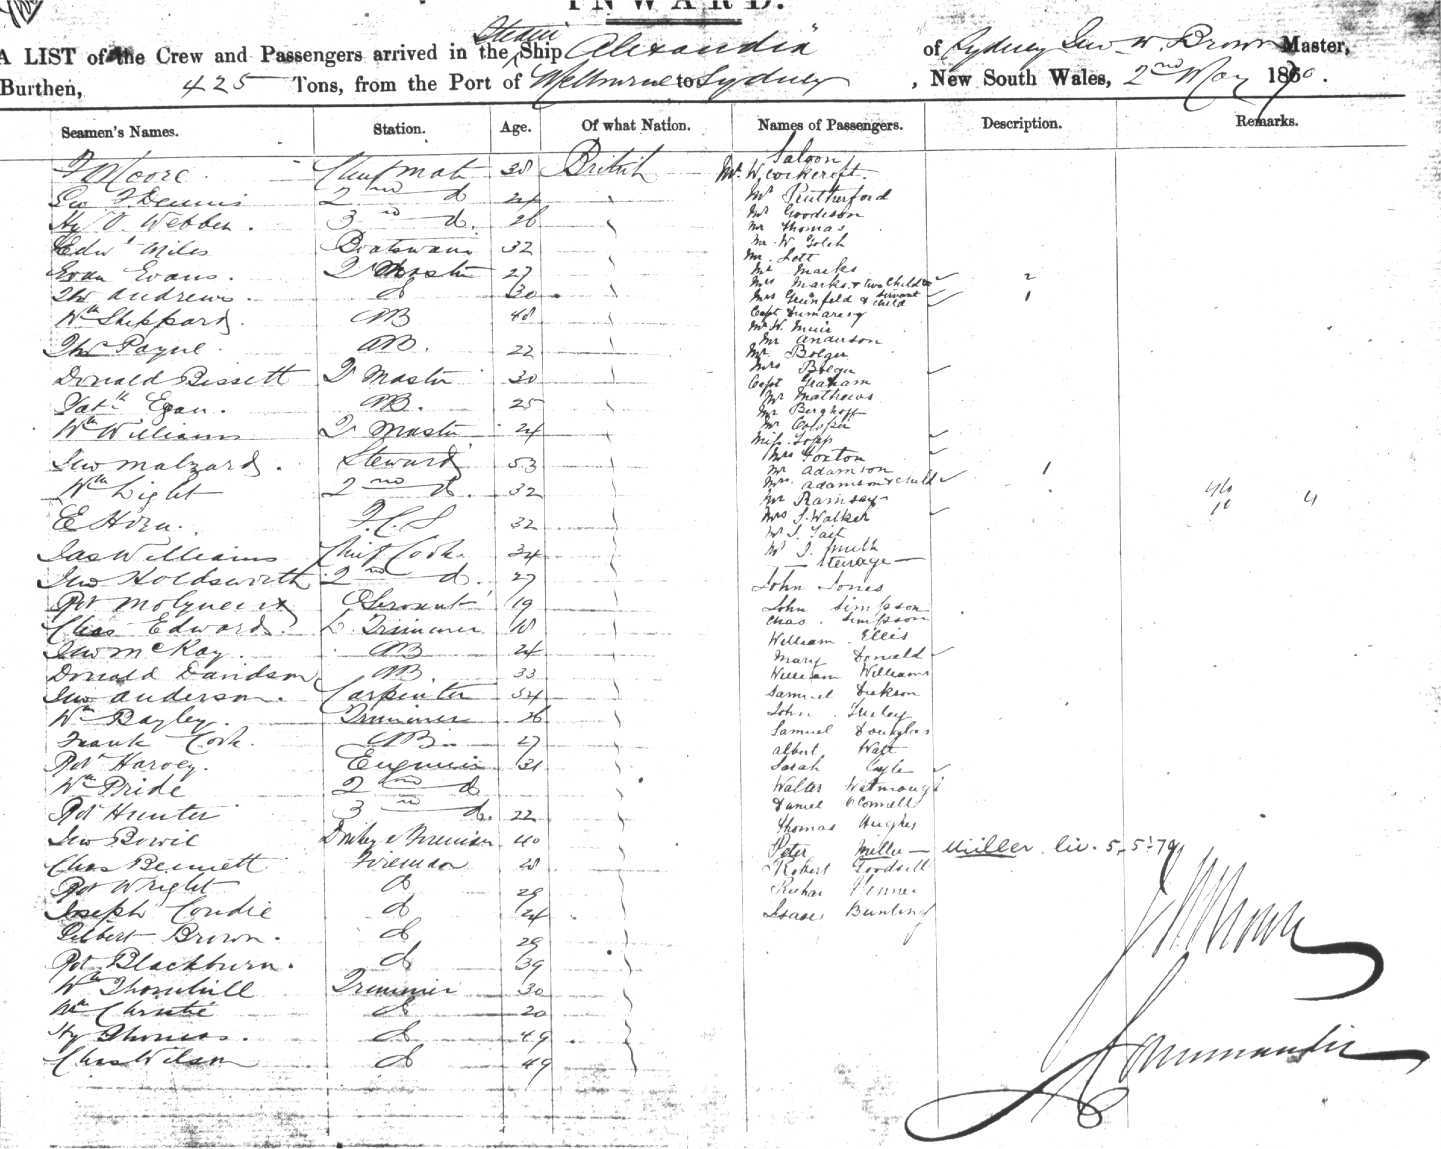 INWARD.
A LIST of the Crew and Passengers arrived in the Steam Ship Alexandra of Sydney Geo W. Brown Master,
Burthen, 425 Tons, from the Port of Melbourne to Sydney, New South Wales, 2nd May 1870.
Seamen's Names. Station. Age. Of what Nation. Names of Passengers. Description. Remarks.
Moore Chief Mate 38 British
Geo Dennis 2nd do 24
Hy Webber. 3rd do. 26
Edwd Miles Boatswain 32
Evan Evans. Qr Master 27
Thos Andrews do 30
Wm Sheppard AB 48
Thos Payne AB. 22
Donald Bissett Qr Master 30
Patk Egan. AB. 25
Wm Williams Qr Master 24
Jno Malzard. Steward 53
Wm Light 2nd do. 32
E Horn. F.C.S 32
Jas Williams Chief Cook 34
Jno Holdsworth 2nd do. 27
Rot Molyneux Servant 19
Chas Edwards Trimmer 18
Jno McKay. AB 24
Donald Davidson AB. 33
Jno Anderson. Carpenter 54
Wm Bayley. Trimmer 26
Frank Cook. AB. 27
Rot Harvey. Engineer 31
Wm Pride 2nd do
Rot Hunter 3rd do. 22
Jno Bowie 40
Chas Bennett Fireman 28
Rot Wright do 29
Joseph Condie do 24
Gilbert Brown. do 29
Rot Blackburn. do 39
Wm Thornhill Trimmer 30
Wm Christie do 20
Hy Thomas. do 49
Chas Wilson do 49
Saloon
Mr. W. Cockcroft.
Mr Rutherford
Mr Goodison
Mr Thomas
Mr W
Mr Lott
Mr Marks
Mrs Marks & two Child 2
Mrs Grunfeld & servant child 1
Capt Dumaresq
Mr W. Muir
Mr Anderson
Mr Bolger
Mrs Bolger
Capt Graham
Mr Mathews
Mr Berghoff
Mr
Miss Topp
Mrs Foxton
Mr Adamson
Mrs Adamson & Child 1
Mr Ramsay
Mrs J. Walker
Mr J. Tait
Mr J. Smith
Steerage
John Jones
John Simpson
Chas. Simpson
William Ellis
Mary Donald
William Williams
Samuel Dickson
John
Samuel Douglas
Albert Watt
Sarah
Walter Watmough
Daniel O'Connell
Thomas Hughes
Peter Miller Müller liv. 5-5-79
Robert Goodsell
Richar Venner
Isaac Bunting
46 4
10
Commander